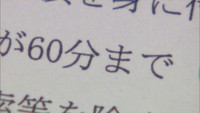 を身に
が60分まで
等を除